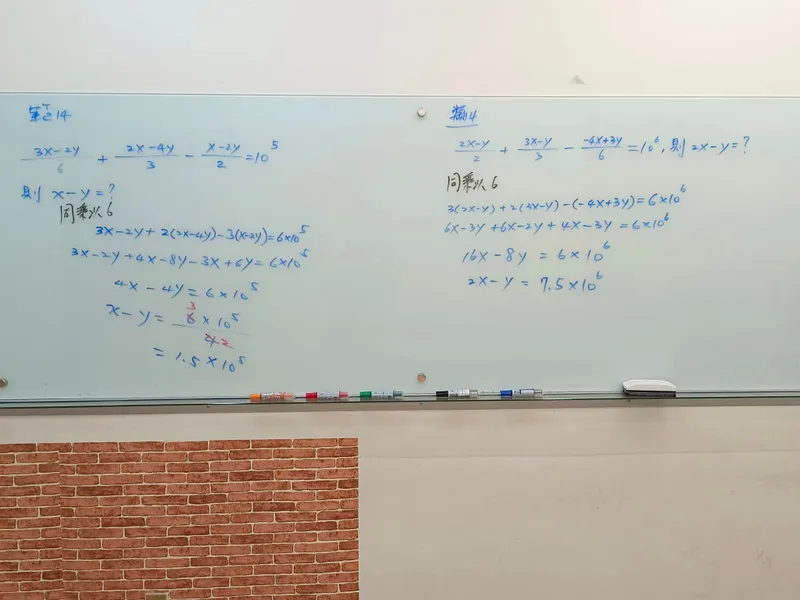 筆記14
3x-2y/6 + 2x-4y/3 - x-2y/2 = 10⁵
則 x-y=?
同乘以6
3x-2y+2(2x-4y)-3(x-2y)=6×10⁵
3x-2y+4x-8y-3x+6y=6×10⁵
4x-4y=6×10⁵
x-y= 3 6×10⁵/4 2
=1.5×10⁵
類4
2x-y/2 + 3x-y/3 - -4x+3y/6 =10⁶, 則 2x-y=?
同乘以6
3(2x-y)+2(3x-y)-(-4x+3y)=6×10⁶
6x-3y+6x-2y+4x-3y=6×10⁶
16x-8y=6×10⁶
2x-y=7.5×10⁶